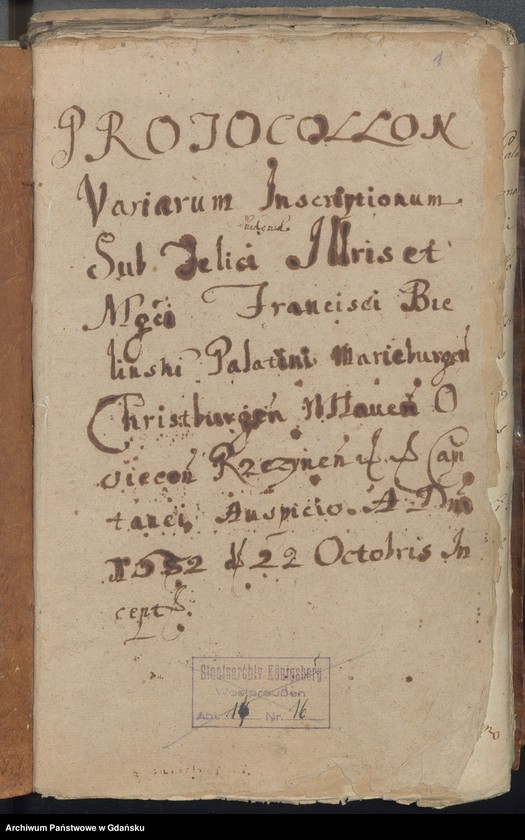 1
PROTOCOLLON
Variarum Inscriptionum
Sub Felici Illris et
Mgci Francisci Bie
linski Palatini Marieburgeñ
Christburgeñ Htaueñ O
sieceñ Rzczyneñ Capi
tanei Auspicio. A Dni
22 Octobris In
cept
Staatsarchiv Königsberg
Westpreußen
Abt. Nr. 16
Archiwum Państwowe w Gdańsku